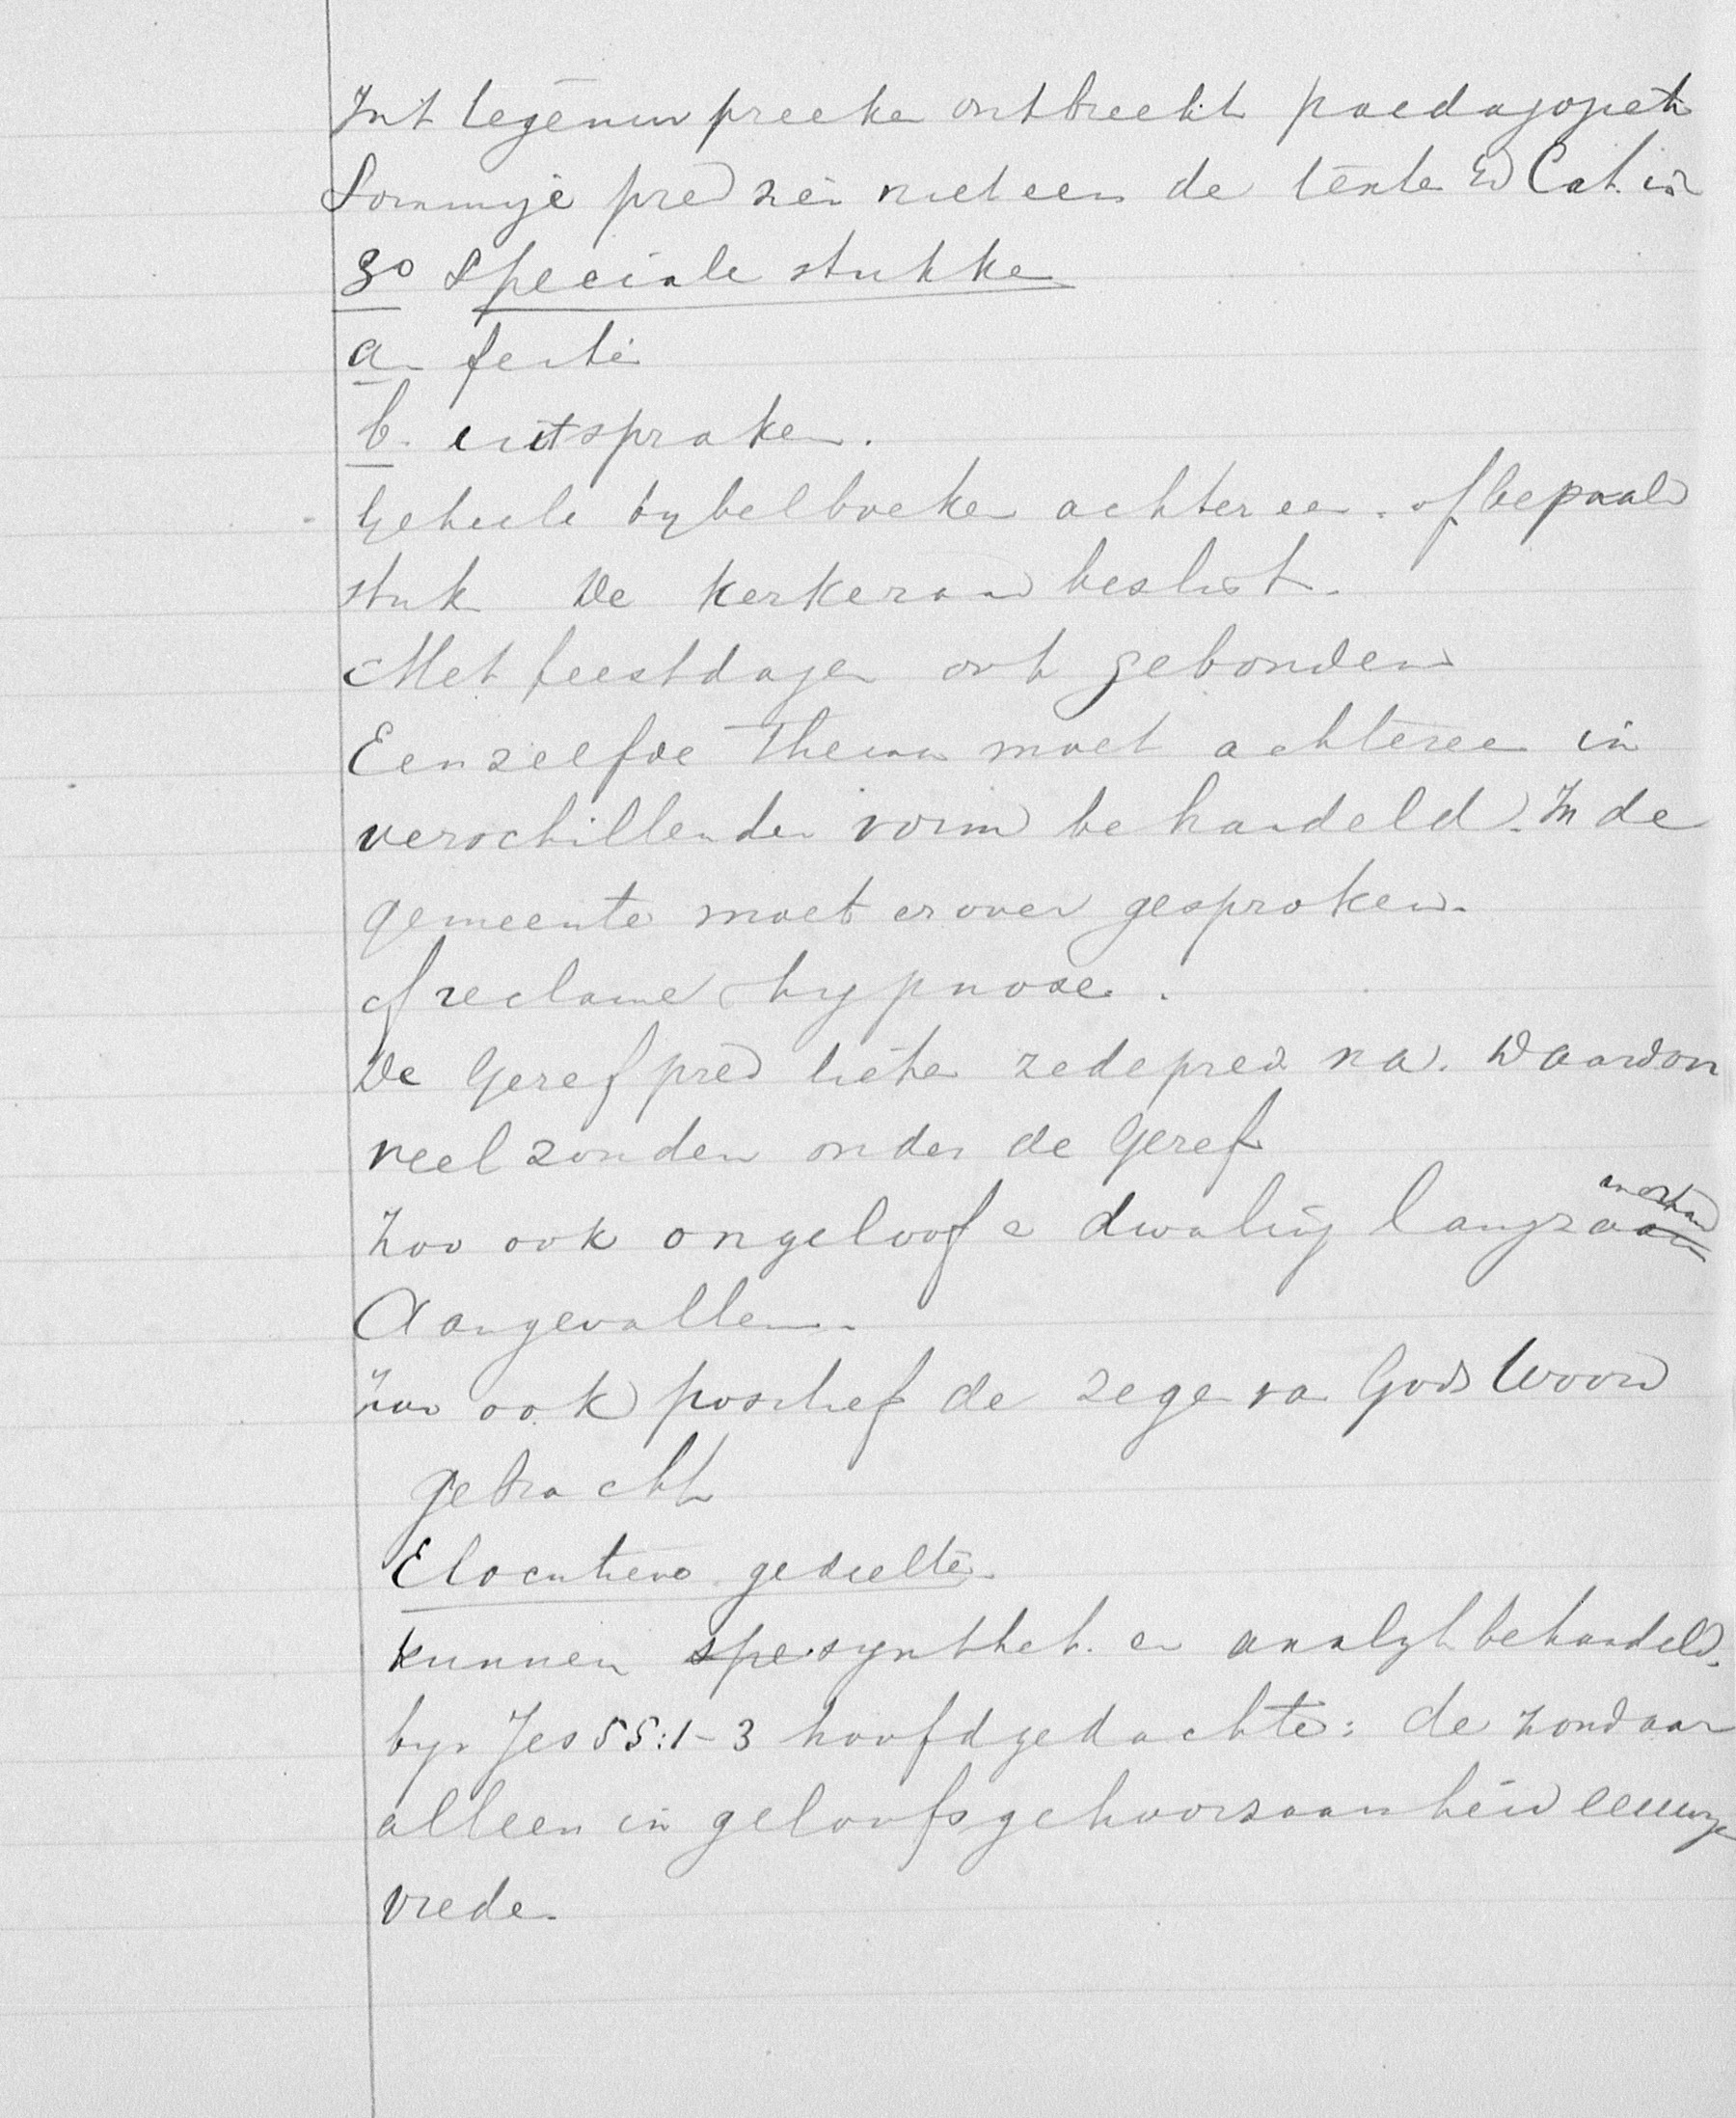 Int tegenw preeke ontbreekt paedagogiek
Sommige pred zien niet eens de texte v/d Cat. in
3o Speciale stukke
a. feite
b. uitspraken.
Geheele bybelboeke achtereen. of bepaald
stuk De kerkeraad beslist.
Met feestdagen ook gebonden
Eenzelfde thema moet achtereen in
verschillende vorm behandeld. In de
gemeente moet erover gesproken.
cf reclame hypnose.
De Geref pred liete zedepred na. Daardoor
veel zonden onder de Geref
Zoo ook ongeloof & dwaling langzaam
Aangevallen.
Zoo ook positief de zege va Gods Woord
gebracht
Elocutieve gedeelte.
kunnen spe. synthet. en analyt behandeld.
byv Jes 55:1-3 hoofdgedachte: de zondaar
alleen in geloofsgehoorzaamheid eeuwige
vrede.